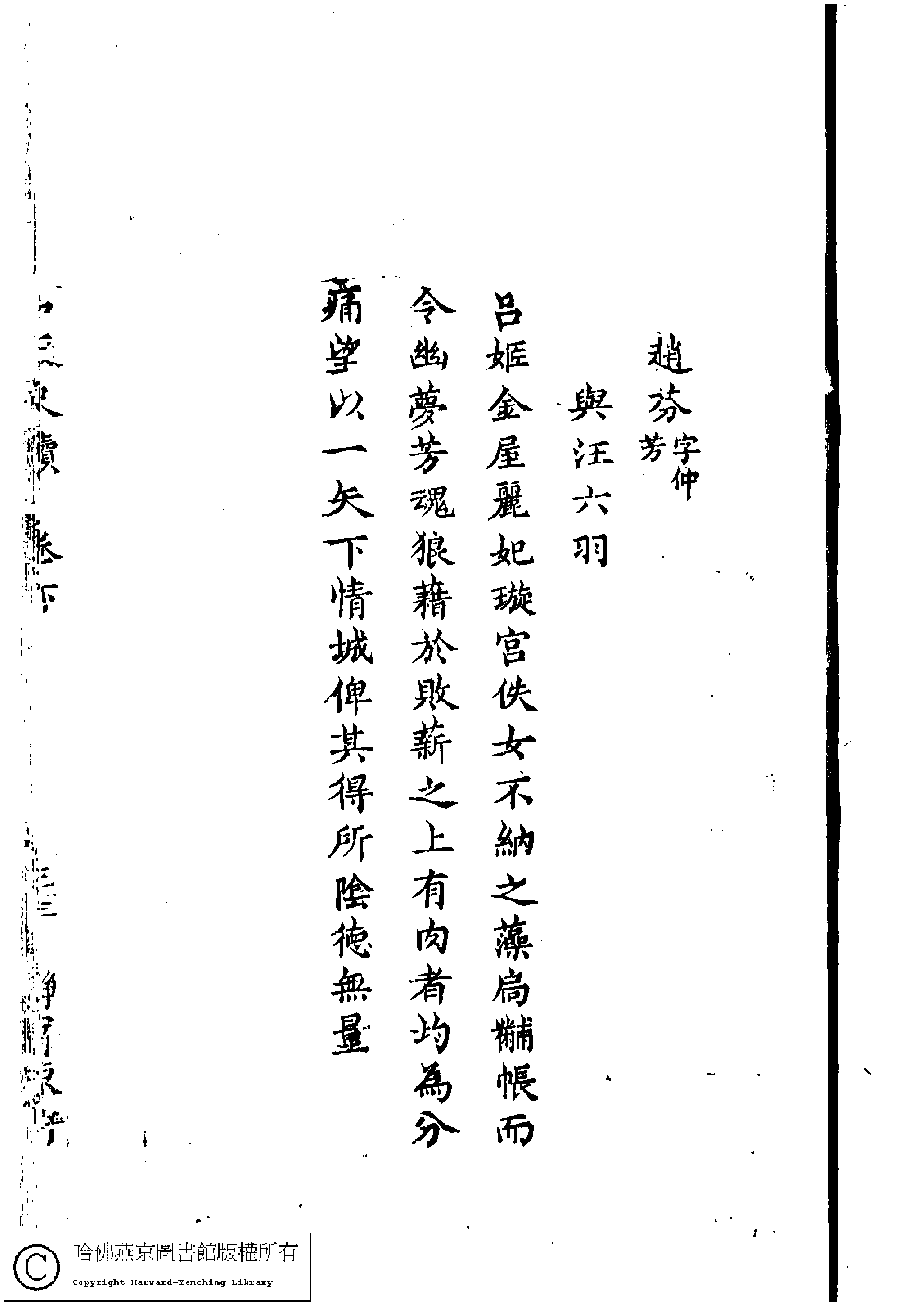 趙芬字仲芳
與汪六羽
呂姬金屋麗妃璇宮佚女不納之藻扃黼帳而
令幽夢芳魂狼藉於敗薪之上有肉者均為分
痛望以一矢下情城俾其得所陰德無量
尺牘 卷下
三三
哈佛燕京圖書館版權所有
Copyright Harvard-Yenching Library